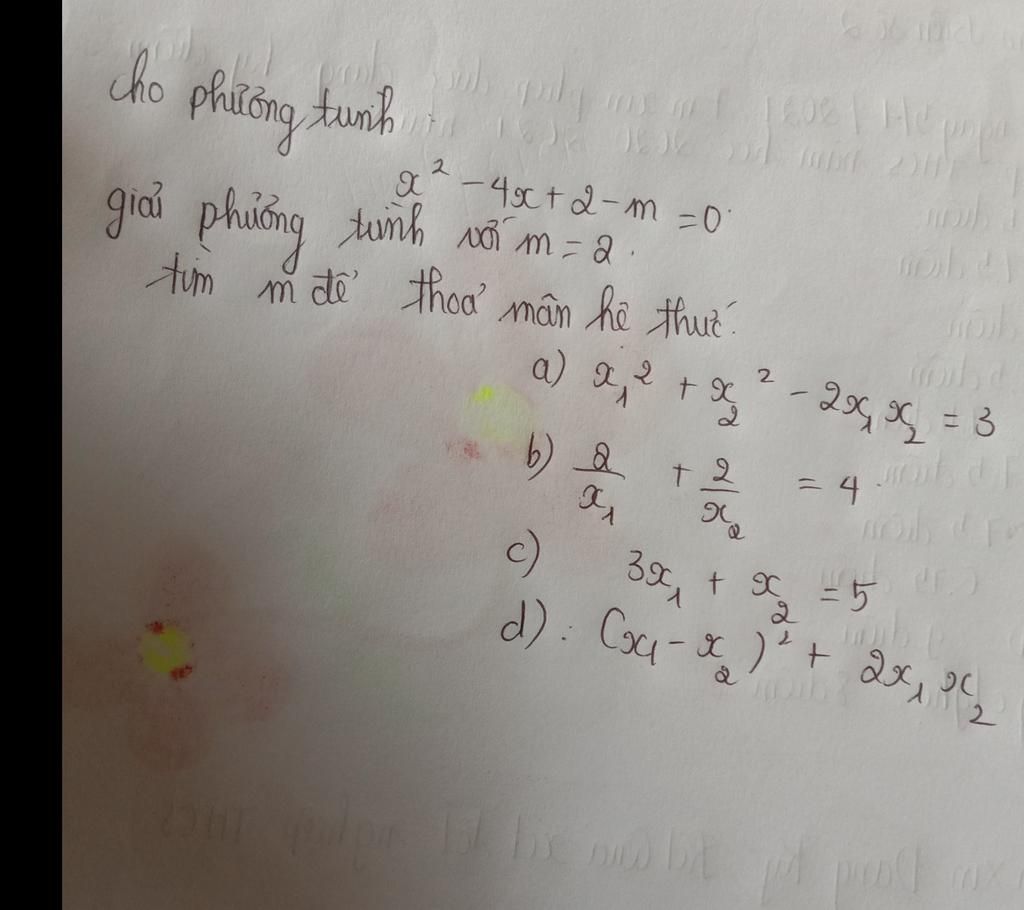 cho phương trình :
x² - 4x + 2 - m = 0
giải phương trình với m = 2.
tìm m để thoả mãn hệ thức:
a) x₁² + x₂² - 2x₁x₂ = 3
b) 2/x₁ + 2/x₂ = 4.
c) 3x₁ + x₂ = 5
d). (x₁ - x₂)² + 2x₁x₂